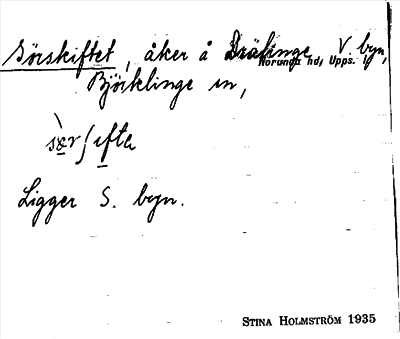 Sörskiftet, åker å Drälinge V. byn,
Norunda hd, Upps. l.
Björklinge sn,
sœ̀rʃifta
Ligger S. byn.
STINA HOLMSTRÖM 1935